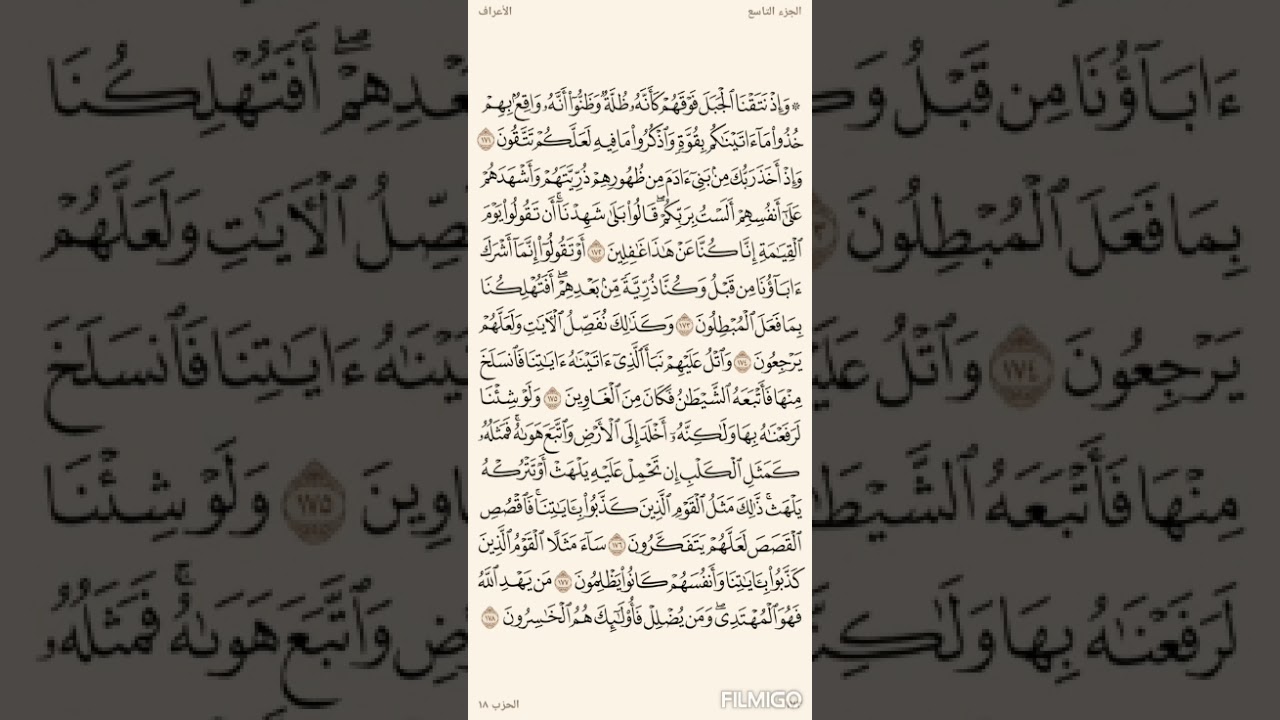 الجزء التاسع
الأعراف
۞ وَإِذۡ نَتَقۡنَا ٱلۡجَبَلَ فَوۡقَهُمۡ كَأَنَّهُۥ ظُلَّةٞ وَظَنُّوٓاْ أَنَّهُۥ وَاقِعُۢ بِهِمۡ
خُذُواْ مَآ ءَاتَيۡنَٰكُم بِقُوَّةٖ وَٱذۡكُرُواْ مَا فِيهِ لَعَلَّكُمۡ تَتَّقُونَ ١٧١
وَإِذۡ أَخَذَ رَبُّكَ مِنۢ بَنِيٓ ءَادَمَ مِن ظُهُورِهِمۡ ذُرِّيَّتَهُمۡ وَأَشۡهَدَهُمۡ
عَلَىٰٓ أَنفُسِهِمۡ أَلَسۡتُ بِرَبِّكُمۡۖ قَالُواْ بَلَىٰ شَهِدۡنَآۚ أَن تَقُولُواْ يَوۡمَ
ٱلۡقِيَٰمَةِ إِنَّا كُنَّا عَنۡ هَٰذَا غَٰفِلِينَ ١٧٢ أَوۡ تَقُولُوٓاْ إِنَّمَآ أَشۡرَكَ
ءَابَآؤُنَا مِن قَبۡلُ وَكُنَّا ذُرِّيَّةٗ مِّنۢ بَعۡدِهِمۡۖ أَفَتُهۡلِكُنَا
بِمَا فَعَلَ ٱلۡمُبۡطِلُونَ ١٧٣ وَكَذَٰلِكَ نُفَصِّلُ ٱلۡأٓيَٰتِ وَلَعَلَّهُمۡ
يَرۡجِعُونَ ١٧٤ وَٱتۡلُ عَلَيۡهِمۡ نَبَأَ ٱلَّذِيٓ ءَاتَيۡنَٰهُ ءَايَٰتِنَا فَٱنسَلَخَ
مِنۡهَا فَأَتۡبَعَهُ ٱلشَّيۡطَٰنُ فَكَانَ مِنَ ٱلۡغَاوِينَ ١٧٥ وَلَوۡ شِئۡنَا
لَرَفَعۡنَٰهُ بِهَا وَلَٰكِنَّهُۥٓ أَخۡلَدَ إِلَى ٱلۡأَرۡضِ وَٱتَّبَعَ هَوَىٰهُۚ فَمَثَلُهُۥ
كَمَثَلِ ٱلۡكَلۡبِ إِن تَحۡمِلۡ عَلَيۡهِ يَلۡهَثۡ أَوۡ تَتۡرُكۡهُ
يَلۡهَثۚ ذَّٰلِكَ مَثَلُ ٱلۡقَوۡمِ ٱلَّذِينَ كَذَّبُواْ بِـَٔايَٰتِنَاۚ فَٱقۡصُصِ
ٱلۡقَصَصَ لَعَلَّهُمۡ يَتَفَكَّرُونَ ١٧٦ سَآءَ مَثَلًا ٱلۡقَوۡمُ ٱلَّذِينَ
كَذَّبُواْ بِـَٔايَٰتِنَا وَأَنفُسَهُمۡ كَانُواْ يَظۡلِمُونَ ١٧٧ مَن يَهۡدِ ٱللَّهُ
فَهُوَ ٱلۡمُهۡتَدِيۖ وَمَن يُضۡلِلۡ فَأُوْلَٰٓئِكَ هُمُ ٱلۡخَٰسِرُونَ ١٧٨
الحزب ١٨
FILMIGO